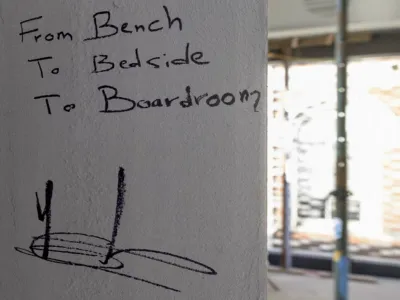 From Bench
To Bedside
To Boardroom